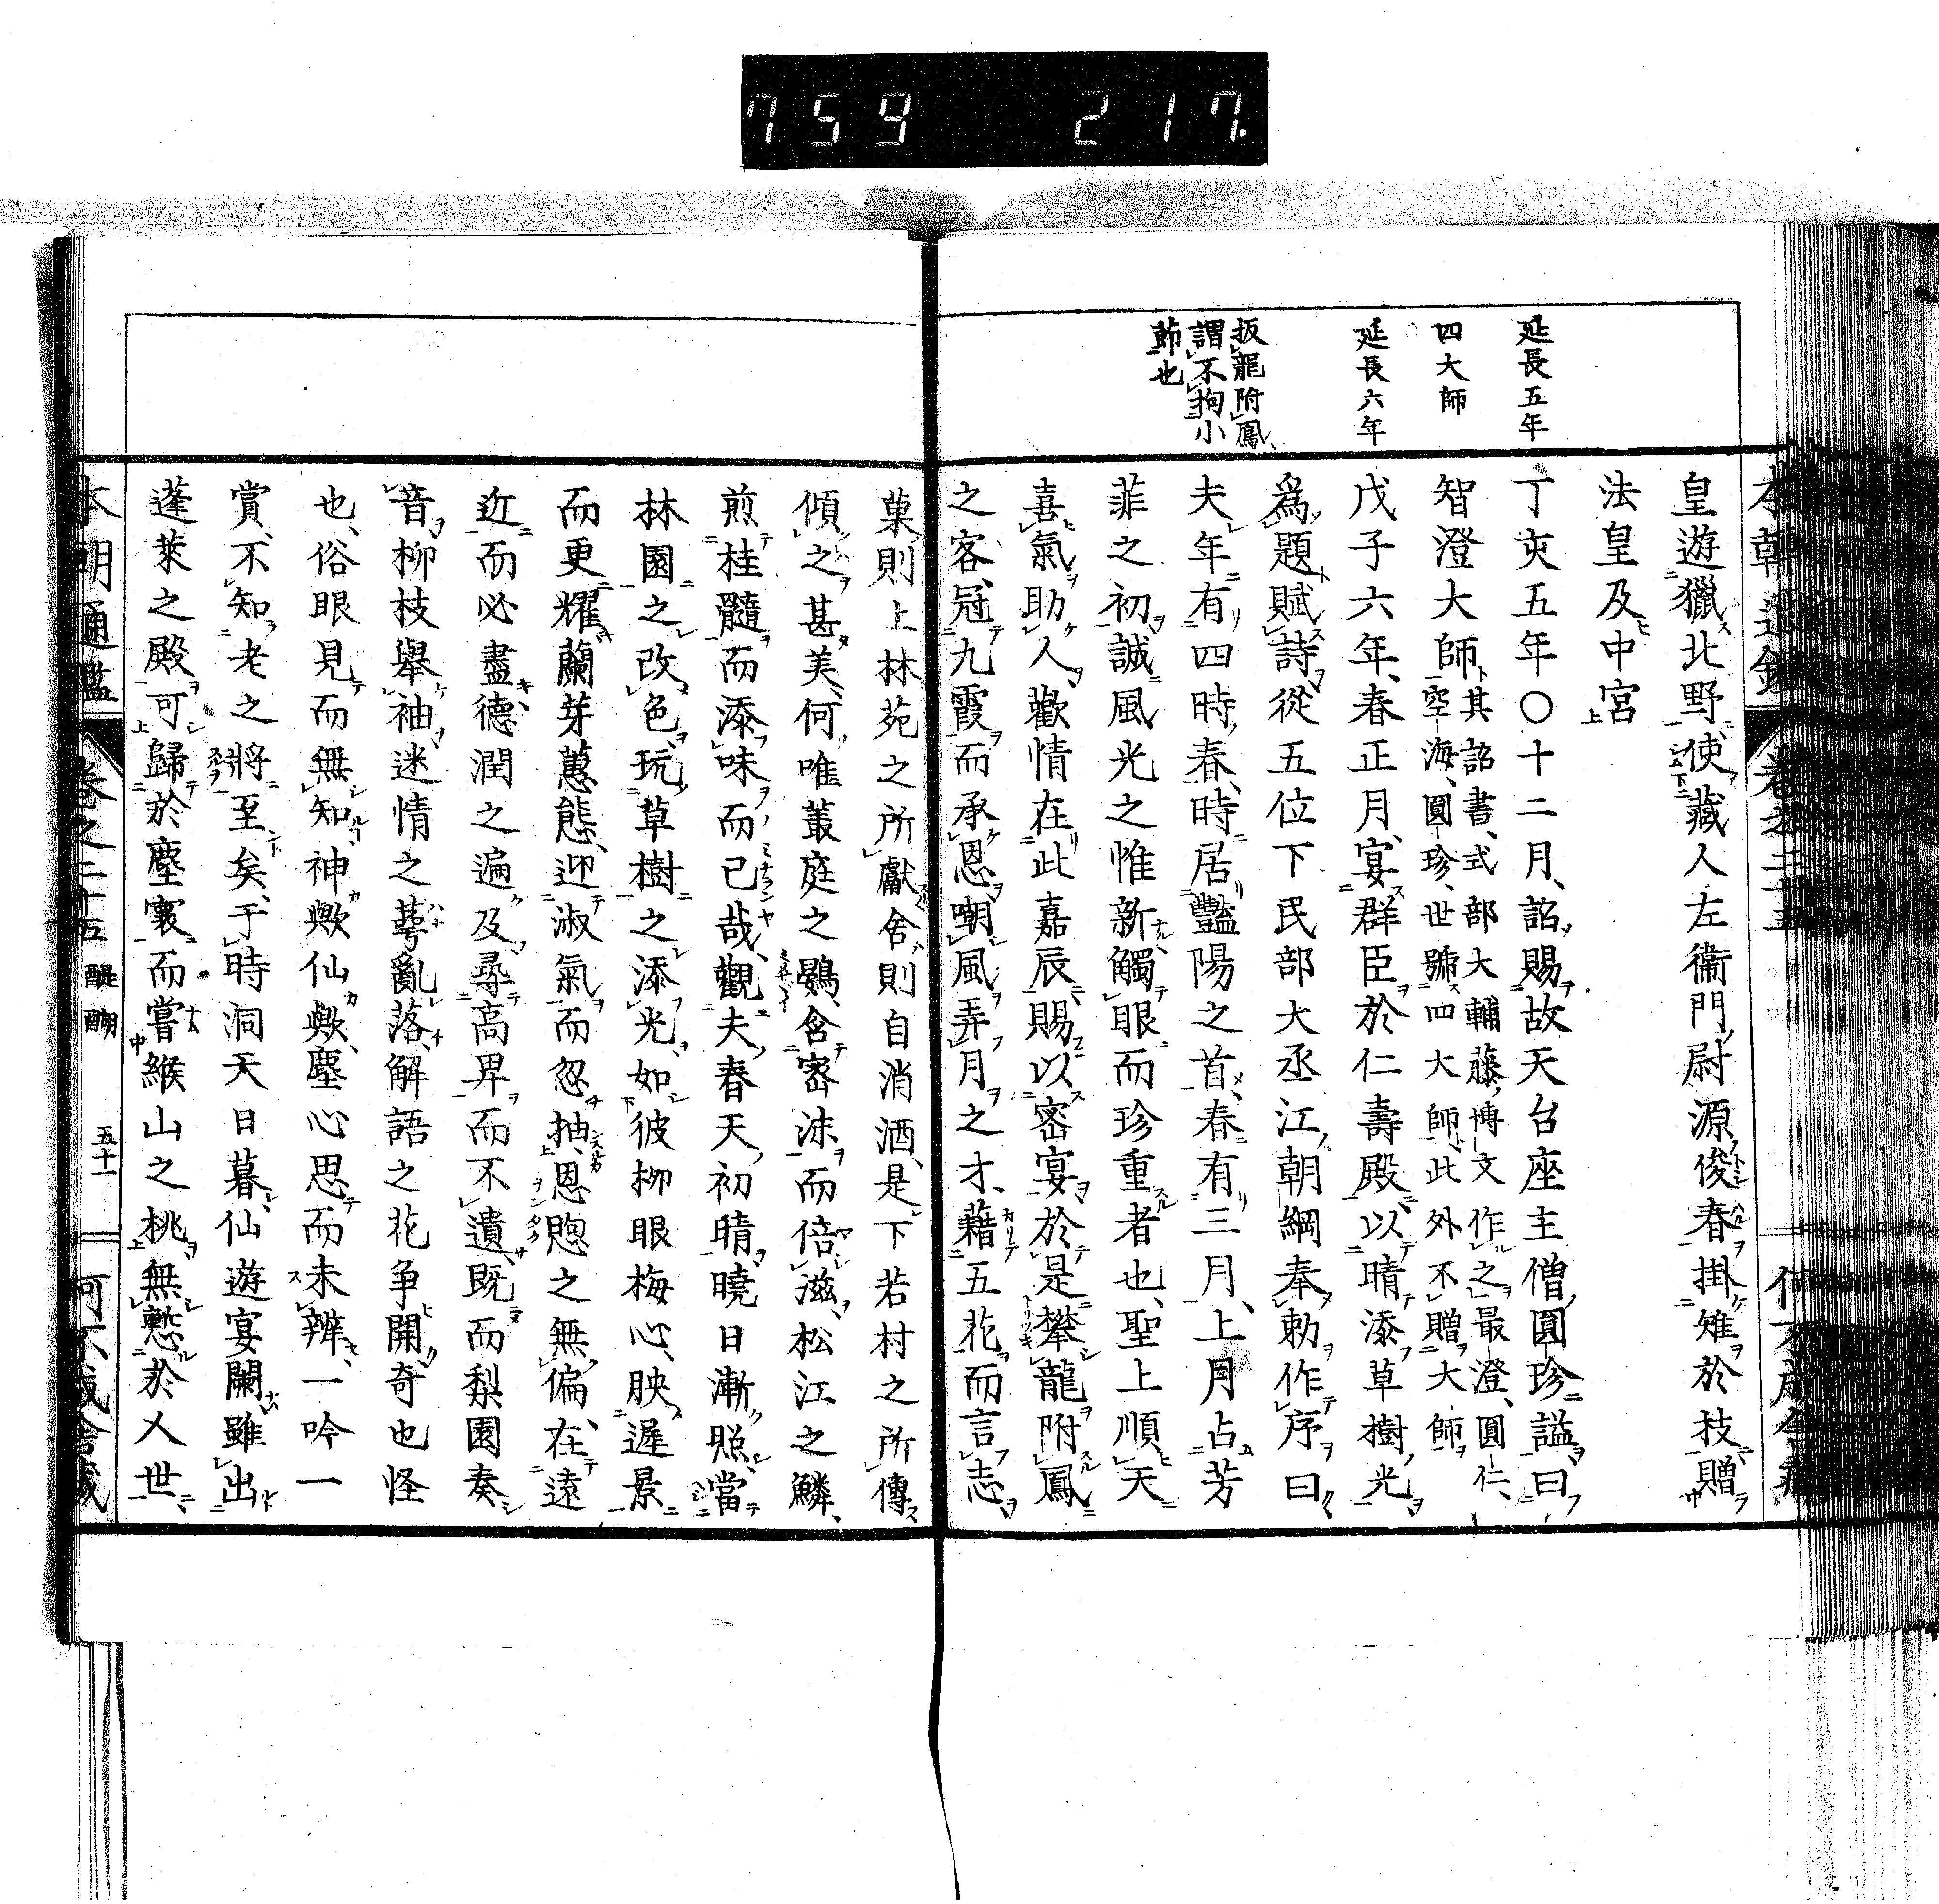 759 217
延長五年
四大師
延長六年
扳龍附鳳
謂不拘小
節也
皇遊獵北野使藏人左衞門尉源俊春掛雉於技贈
法皇及中宮
丁亥五年〇十二月、詔賜故天台座主僧圓珍諡曰
智澄大師其詔書、式部大輔藤博文作之最澄、圓仁、
空海、圓珍、世號四大師此外不贈大師
戊子六年、春正月、宴群臣於仁壽殿以晴添草樹光
爲題賦詩從五位下民部大丞江朝綱奉勅作序曰
夫年有四時、春時居豔陽之首、春有三月、上月占芳
菲之初誠風光之惟新觸眼而珍重者也、聖上順天
喜氣助人、歡情在此嘉辰、賜以密宴於是攀龍附鳳
之客、冠九霞而承恩、嘲風弄月之才、藉五花而言志、
菓則上林苑之所獻舍則自消酒、是下若村之所傳
傾之甚美、何唯叢庭之鷃、含密沫而倍滋、松江之鱗、
煎桂髓而添味而已哉、觀夫春天初晴曉日漸照、當
林園之改色、玩草樹之添光、如彼柳眼梅心、映遲景
而更耀蘭芽蕙態、迎淑氣而忽抽、恩煦之無偏、在遠
近而必盡德潤之遍及、尋高卑而不遺、既而梨園奏
音、柳枝擧袖迷情之萼亂落、解語之花争開奇也怪
也、俗眼見而無知神歟仙歟、塵心思而未辨、一吟一
賞、不知老之將至矣、于時洞天日暮、仙遊宴闌雖出
蓬萊之殿可歸於塵寰而嘗緱山之桃無慙於人世
本朝通鑑 卷之二十五 醍醐 五十一